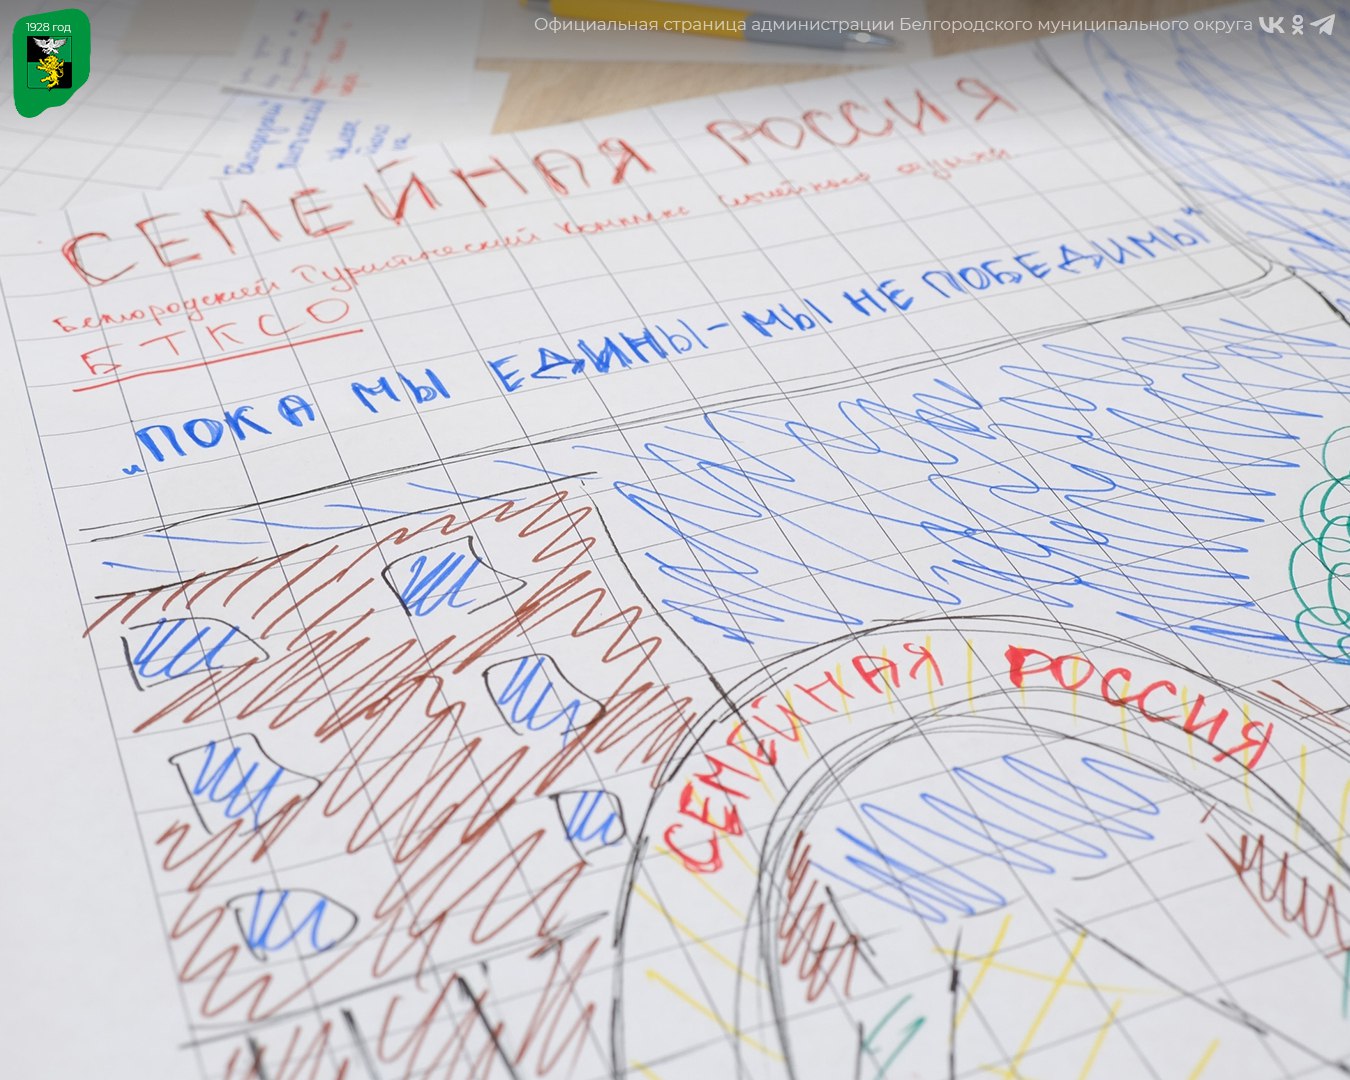 1928 год
Официальная страница администрации Белгородского муниципального округа
СЕМЕЙНАЯ РОССИЯ
Белгородский Туристический Комплекс семейного отдыха
БТКСО
"ПОКА МЫ ЕДИНЫ - МЫ НЕ ПОБЕДИМЫ"
СЕМЕЙНАЯ РОССИЯ